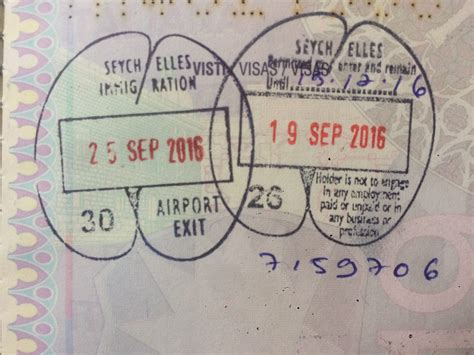 SEYCHELLES
IMMIGRATION
25 SEP 2016
30
AIRPORT
EXIT
VISAS
SEYCHELLES
Permitted to enter and remain
Until
12.16
19 SEP 2016
26
Holder is not to engage
in any employment
paid or unpaid or in
any business or
profession
7159706